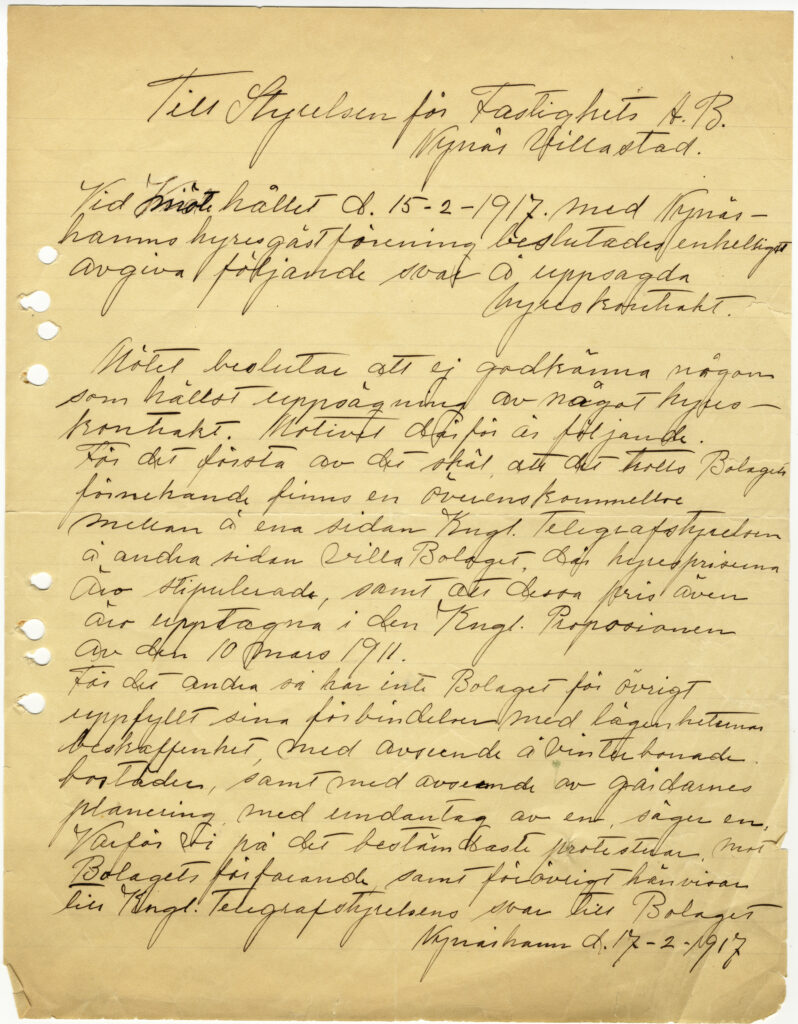 Till Styrelsen för Fastighets A.B.
Nynäs Villastad.
Vid möte hållet d. 15-2-1917. med Nynäs-
hamns hyresgästförening beslutades enhelligt
avgiva följande svar å uppsagda
hyreskontrakt.
Mötet beslutar att ej godkänna någon
som hällst uppsägning av något hyres-
kontrakt. Motivet därför är följande.
För det första av det skäl, att det trotts Bolagets
förnekande finns en överenskommellse
mellan å ena sidan Kngl. Telegrafstyrelsen
å andra sidan Villa Bolaget, där hyrespriserna
äro stipulerade, samt att dessa pris även
äro upptagna i den Kngl. Proposionen
av den 10 mars 1911.
För det andra så har inte Bolaget för övrigt
uppfyllt sina förbindelser med lägenheternas
beskaffenhet, med avseende å vinterbonade
bostäder, samt med avseende av gårdarnes
planering, med undantag av en, säger en.
Varför vi på det bestämdaste protesterar, mot
Bolagets förfarande samt förövrigt hänvisar
till Kngl. Telegrafstyrelsens svar till Bolaget
Nynäshamn d. 17-2-1917